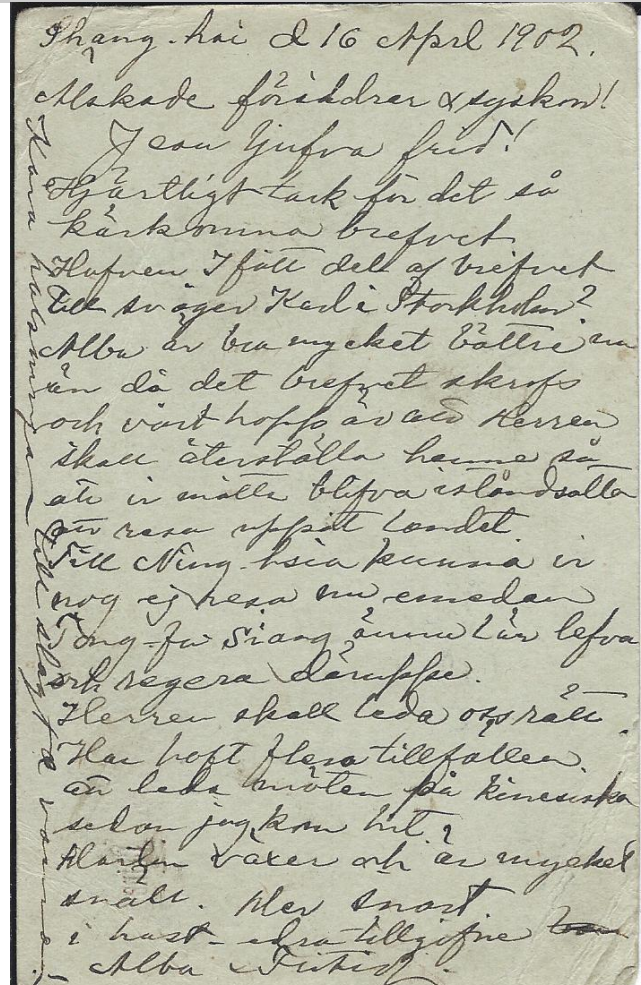 Shang-hai d 16 April 1902.
Älskade föräldrar & syskon!
Jesu ljufva frid!
Hjärtligt tack för det så
kärkomna brefvet.
Hafven I fått del af brefvet
till svåger Karl i Stockholm?
Alba är bra mycket bättre nu
än då det brefvet skrefs
och vårt hopp är att Herren
skall återställa henne så
att vi måtte blifva iståndsatta
att resa uppåt landet.
Till Ning-hsia kunna vi
nog ej resa nu emedan
Tong-fu-Siang ännu lär lefva
och regera däruppe.
Herren skall leda oss rätt.
Har haft flera tillfällen
att leda möten på kinesiska
sedan jag kom hit.
växer och är mycket
snäll. Mer snart
i hast - edra tillgifne
Alba &
Kära hälsningar till släkt & vänner.